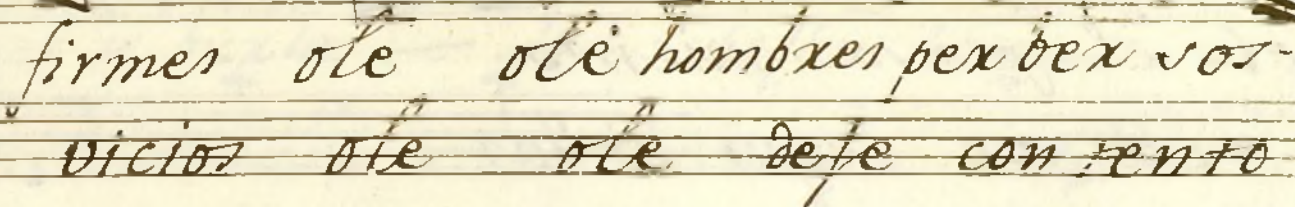 firmes ole olè hombres perber sos-
vicios ole ole deje contento